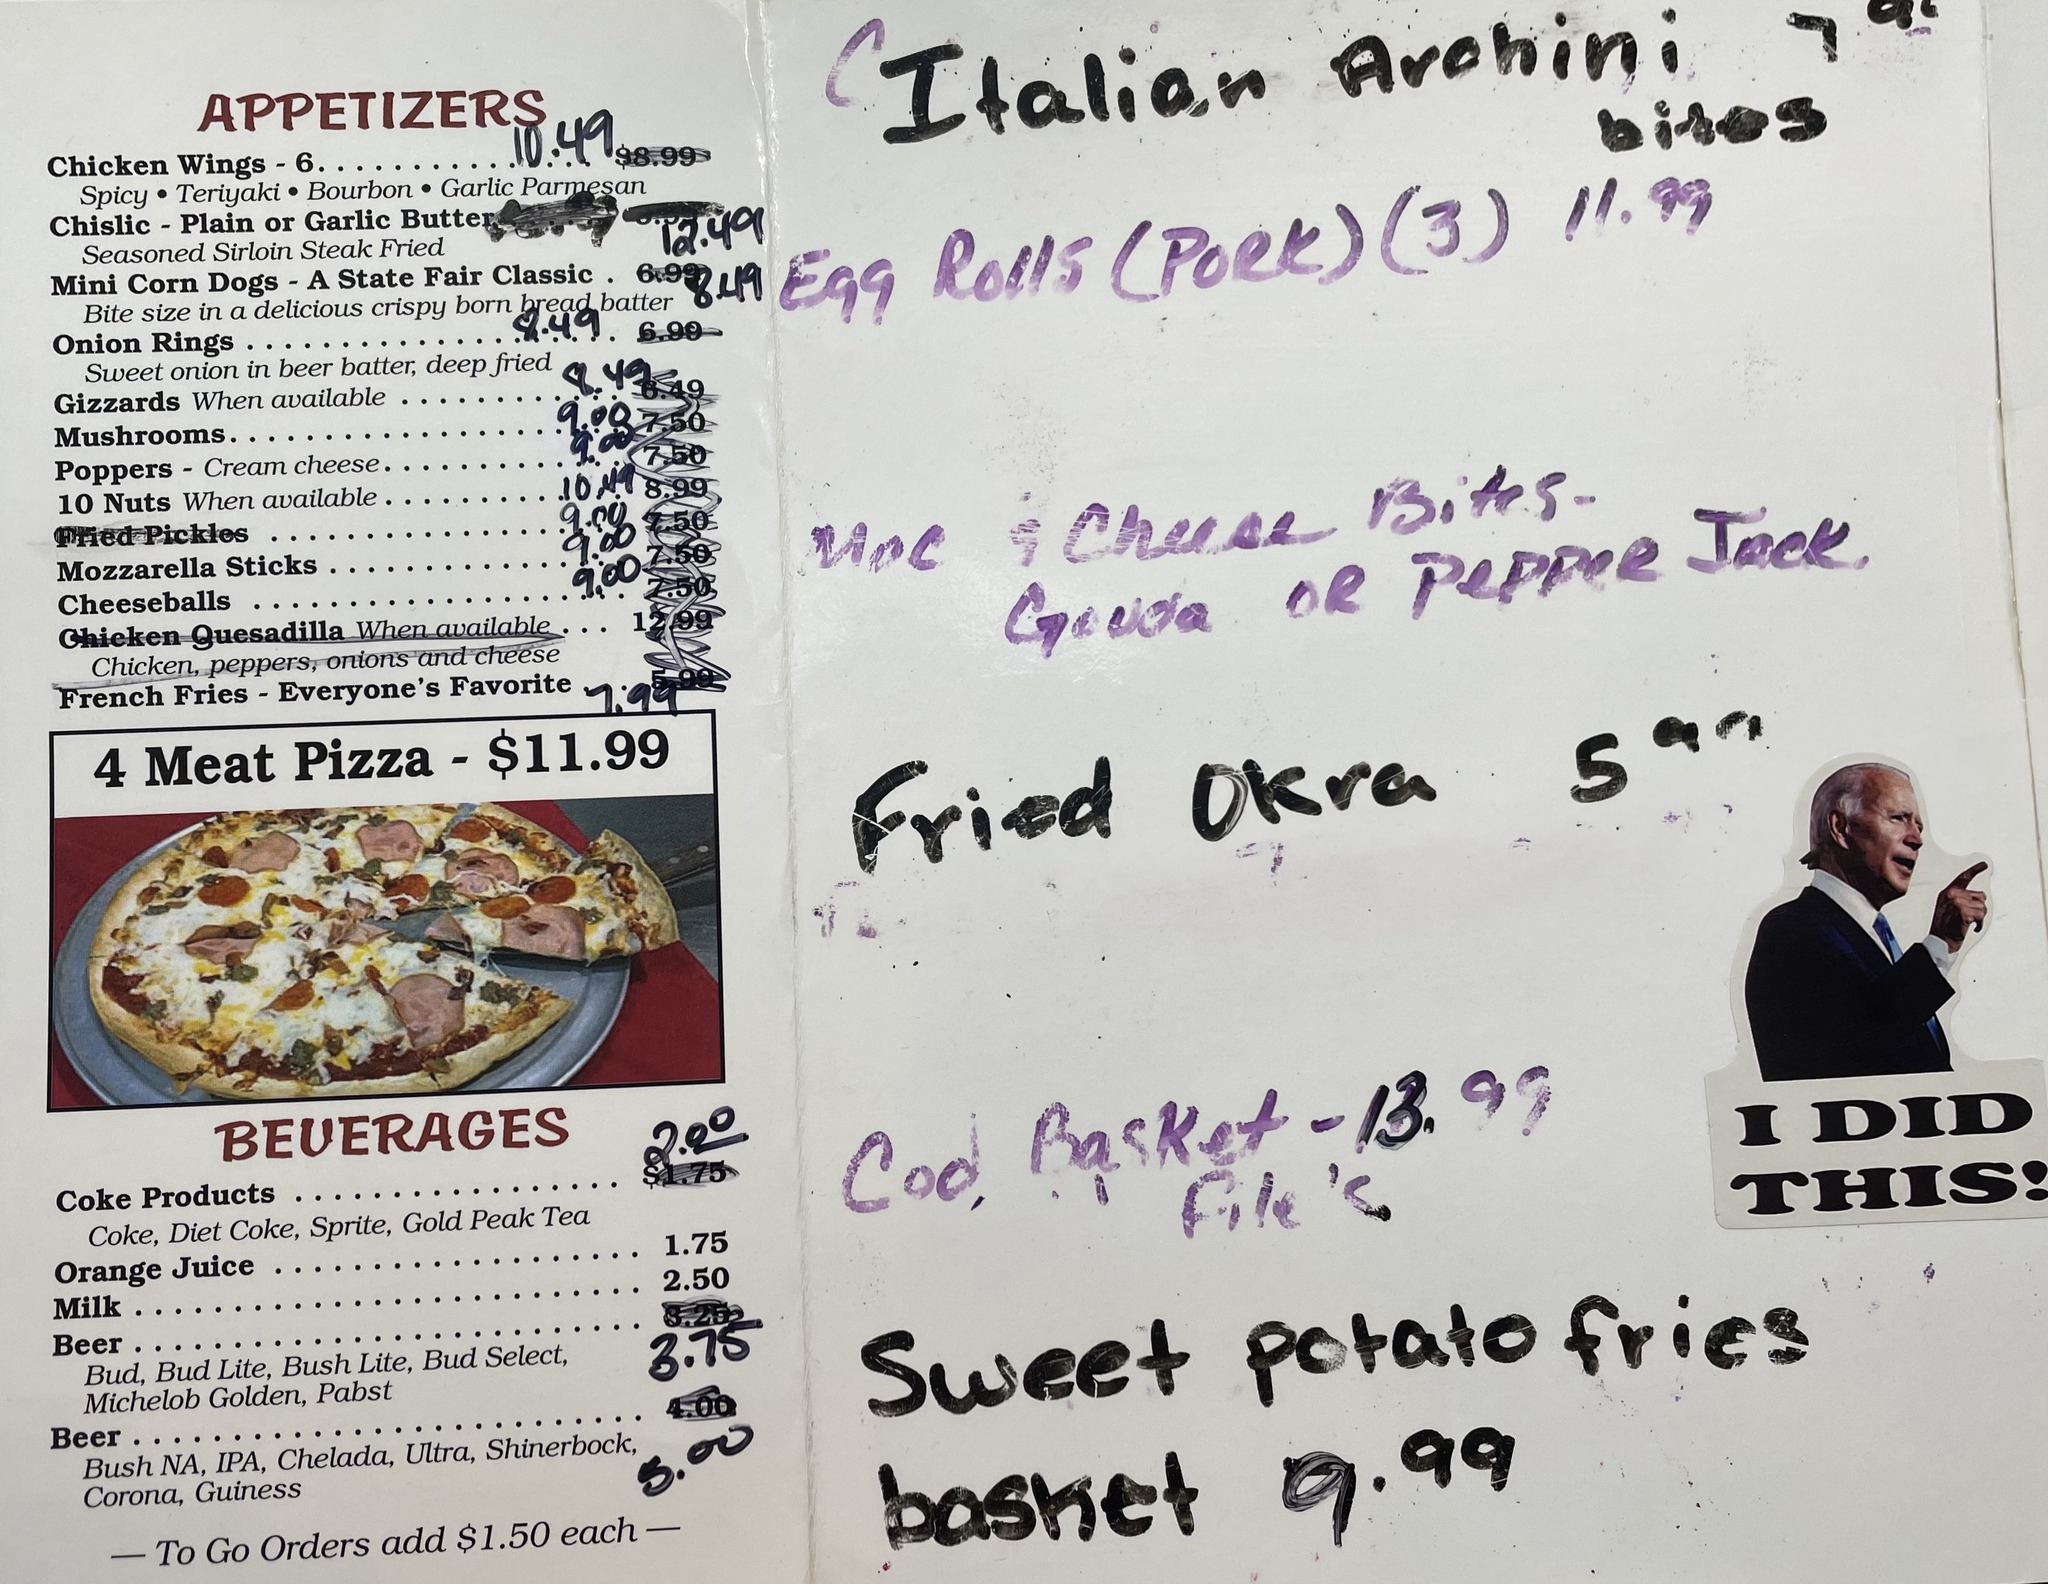 APPETIZERS
Chicken Wings - 6. . . . . . . . . . 10.49 $8.99
Spicy • Teriyaki • Bourbon • Garlic Parmesan
Chislic - Plain or Garlic Butter
12.49
Seasoned Sirloin Steak Fried
Mini Corn Dogs - A State Fair Classic . 6.99 8.49
Bite size in a delicious crispy born bread batter
Onion Rings . . . . . . . . . . 8.49 6.99
Sweet onion in beer batter, deep fried
Gizzards When available . . . . . . . . . . 8.49 6.49
Mushrooms. . . . . . . . . . 9.00 7.50
Poppers - Cream cheese. . . . . . . . . . 9.00 7.50
10 Nuts When available . . . . . . . . . . 10.49 8.99
Fried Pickles . . . . . . . . . . 9.00 7.50
Mozzarella Sticks . . . . . . . . . . 9.00 7.50
Cheeseballs . . . . . . . . . . 9.00 7.50
Chicken Quesadilla When available . . . 12.99
Chicken, peppers, onions and cheese
French Fries - Everyone's Favorite . . 7.99 5.99
4 Meat Pizza - $11.99
BEVERAGES
2.00
Coke Products . . . . . . . . . . $1.75
Coke, Diet Coke, Sprite, Gold Peak Tea
Orange Juice . . . . . . . . . . 1.75
Milk . . . . . . . . . . 2.50
Beer . . . . . . . . . . 3.25
3.75
Bud, Bud Lite, Bush Lite, Bud Select,
Michelob Golden, Pabst
Beer . . . . . . . . . . 4.00
5.00
Bush NA, IPA, Chelada, Ultra, Shinerbock,
Corona, Guiness
— To Go Orders add $1.50 each —
Italian Archini 7
bites
Egg Rolls (Pork) (3) 11.99
Mac & Cheese Bites-
Gouda OR Pepper Jack
Fried Okra 5 99
Cod Basket - 13.99
File's
Sweet potato fries
basket 9.99
I DID
THIS!